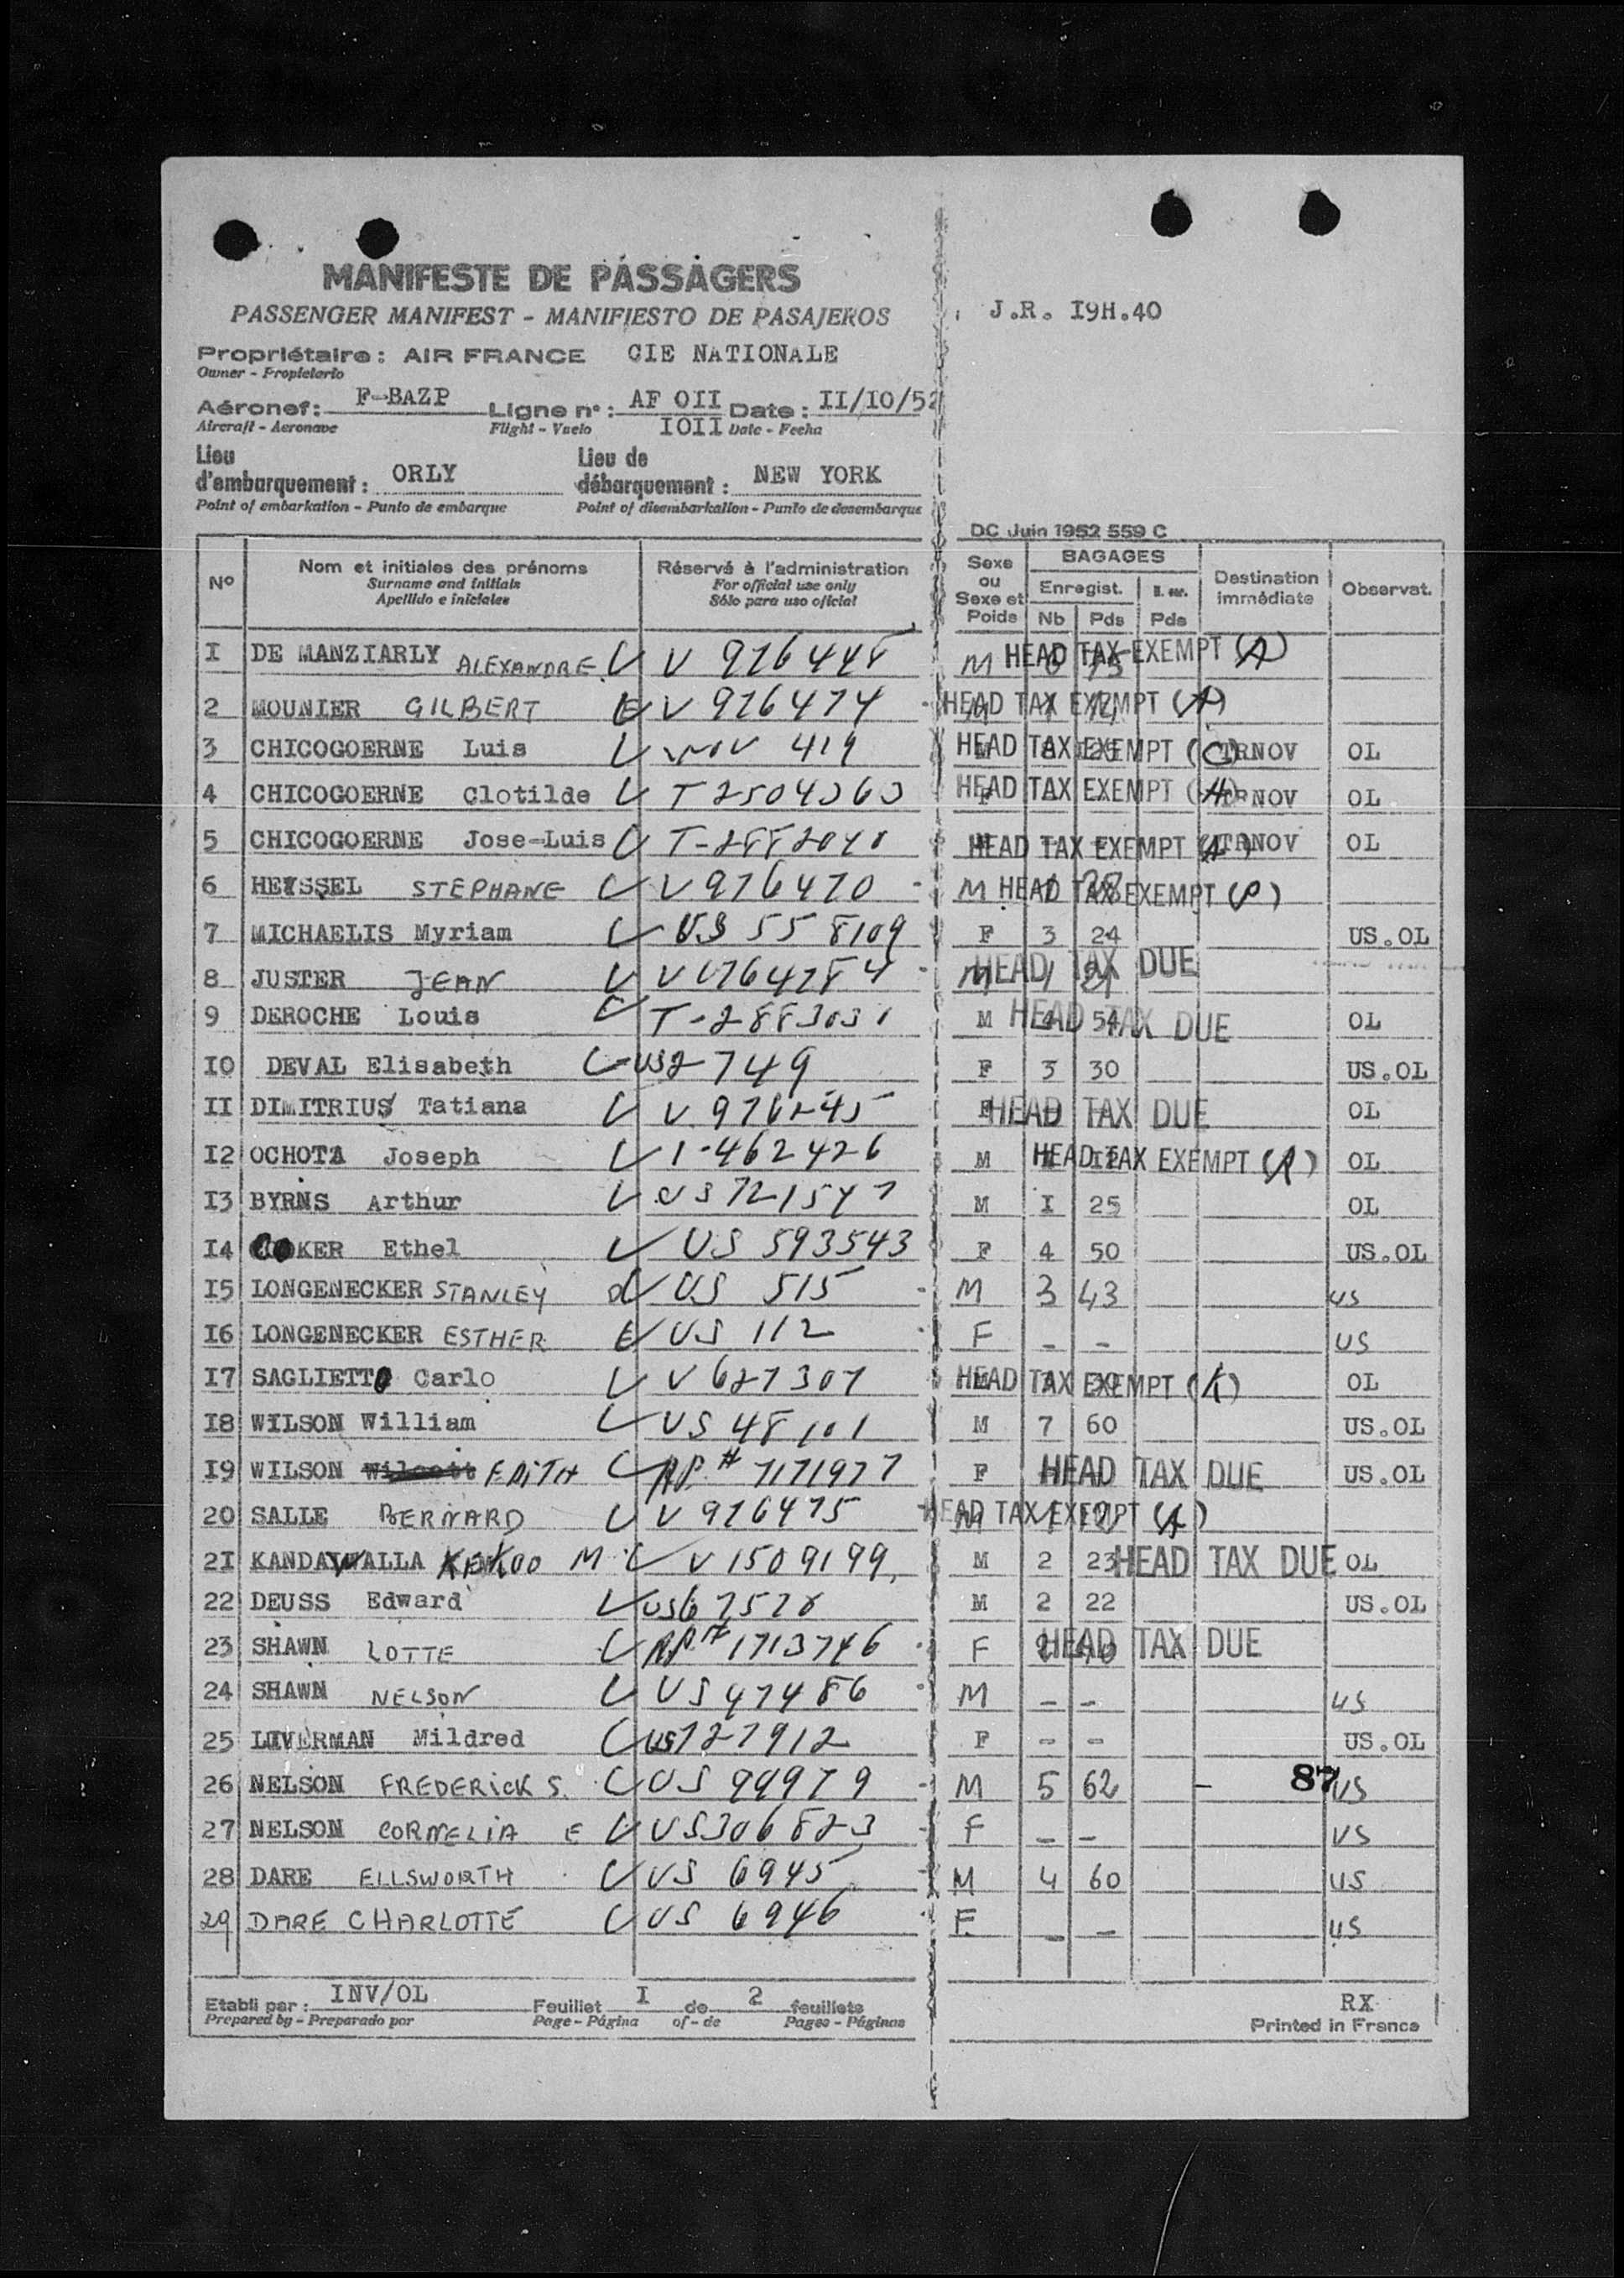 MANIFESTE DE PASSAGERS
PASSENGER MANIFEST - MANIFIESTO DE PASAJEROS
J.R. I9H.40
Propriétaire : AIR FRANCE CIE NATIONALE
Owner - Propietario
Aéronef : F-BAZP Ligne n° : AF OII Date : II/IO/52
Aircraft - Aeronave Flight - Vuelo IOII Date - Fecha
Lieu d'embarquement : ORLY Lieu de débarquement : NEW YORK
Point of embarkation - Punto de embarque Point of disembarkation - Punto de desembarque
DC Juin 1952 559 C
N° Nom et initiales des prénoms Réservé à l'administration Sexe ou Sexe et Poids BAGAGES Destination immédiate Observat.
Surname and initials For official use only Enregist.
Apellido e iniciales Sólo para uso oficial Nb Pds Pds
I DE MANZIARLY ALEXANDRE V 976448 M HEAD TAX EXEMPT (A)
2 MOUNIER GILBERT V 976474 HEAD TAX EXEMPT (A)
3 CHICOGOERNE Luis 419 HEAD TAX EXEMPT (C) TRNOV OL
4 CHICOGOERNE Clotilde T 2504363 HEAD TAX EXEMPT TRNOV OL
5 CHICOGOERNE Jose-Luis T-2882040 HEAD TAX EXEMPT TRNOV OL
6 HEYSSEL STEPHANE V 976470 M HEAD TAX EXEMPT
7 MICHAELIS Myriam US 558109 F 3 24 US.OL
8 JUSTER JEAN M HEAD TAX DUE
9 DEROCHE Louis T-2883031 M 54 HEAD TAX DUE OL
IO DEVAL Elisabeth US 2749 F 3 30 US.OL
II DIMITRIUS Tatiana V 976245 F HEAD TAX DUE OL
I2 OCHOTA Joseph 1-462426 M HEAD TAX EXEMPT (A) OL
I3 BYRNS Arthur US 721547 M I 25 OL
I4 KER Ethel US 593543 F 4 50 US.OL
I5 LONGENECKER STANLEY US 515 M 3 43 US
I6 LONGENECKER ESTHER US 112 F - - US
I7 SAGLIETTO Carlo V 627307 HEAD TAX EXEMPT OL
I8 WILSON William US 48101 M 7 60 US.OL
I9 WILSON EDITH RP # 7171977 F HEAD TAX DUE US.OL
20 SALLE BERNARD V 976475 M HEAD TAX EXEMPT
2I KANDAWALLA M V 1509199 M 2 23 HEAD TAX DUE OL
22 DEUSS Edward US 67578 M 2 22 US.OL
23 SHAWN LOTTE RP # 1713746 F HEAD TAX DUE
24 SHAWN NELSON US 47486 M - - US
25 LIVERMAN Mildred US 727912 F - - US.OL
26 NELSON FREDERICK S. US 99979 M 5 62 - 87 US
27 NELSON CORNELIA E US 306823 F - - US
28 DARE ELLSWORTH US 6945 M 4 60 US
29 DARE CHARLOTTE US 6946 F. - - US
Etabli par : INV/OL Feuillet I de 2 feuillets RX
Prepared by - Preparado por Page - Página of - de Pages - Páginas Printed in France